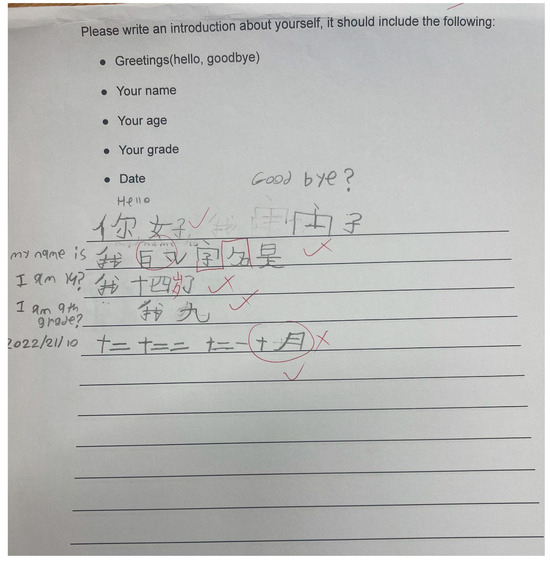 Please write an introduction about yourself, it should include the following:
Greetings(hello, goodbye)
Your name
Your age
Your grade
Date
Good bye?
Hello
你 女子 子
my name is 我 字 名 是
I am 14? 我 十四岁
I am 9th grade? 我 九
2022/21/10 十二 十二二 十二一 十月